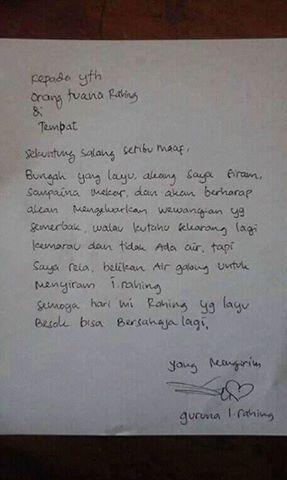 Kepada yth
orang tuana Rahing
di
Tempat
Sekuntung salang seribu maaf,
Bungah yang layu, akang saya siram,
sampaina mekar, dan akan berharap
akan Mengeluarkan wewangian yg
semerbak, walau kutahu sekarang lagi
kemarau dan tidak Ada air, tapi
saya rela, belikan Air galong untuk
Menyiram i.rahing
semoga hari ini Rahing yg layu
Besok bisa Bersahaja lagi.
yang Mengirim
guruna I. rahing